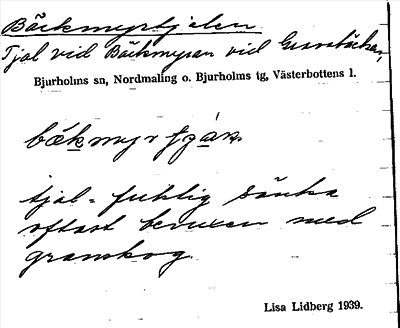 Bäckmyrtjalen
Tjal vid Bäckmyran vid
Bjurholms sn, Nordmaling o. Bjurholms tg, Västerbottens l.
tjal = fuktig sänka
oftast bevuxen med
granskog.
Lisa Lidberg 1939.